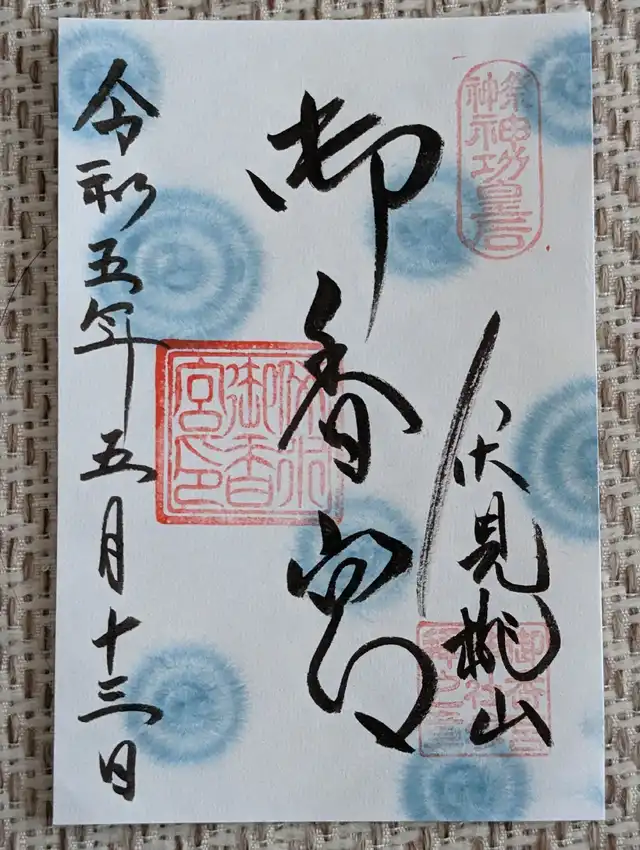 祭神
神功皇后
伏見桃山
御香宮
御香
宮印
令和五年五月十三日